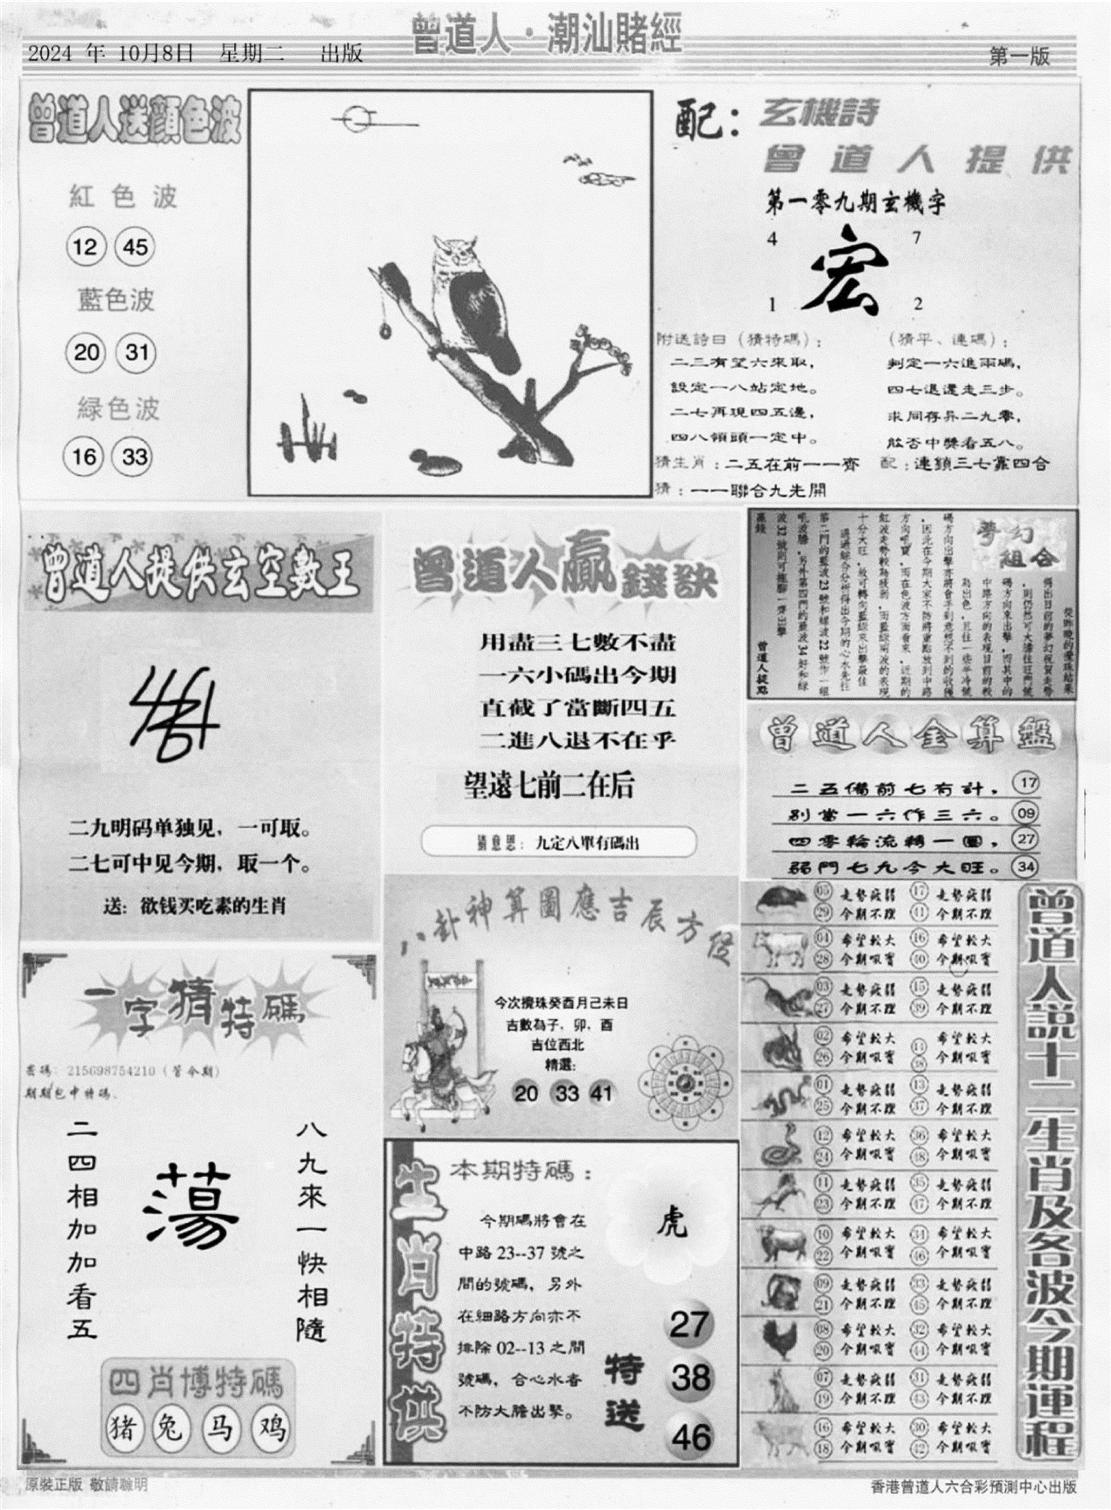 曾道人·潮汕賭經
2024 年 10月8日 星期二 出版
第一版
曾道人送顏色波
紅色波
12 45
藍色波
20 31
緑色波
16 33
配：玄機詩
曾道人提供
第一零九期玄機字
4 7
宏
1 2
附送詩曰（猜特碼）：
二三有望六來取，
設定一八站定地。
二七再現四五邊，
四八領頭一定中。
（猜平、連碼）：
判定一六進兩碼，
四七退還走三步。
求同存异二九零，
能否中獎看五八。
猜生肖：二五在前一一齊 配：連鎖三七靠四合
猜：一一聯合九先開
曾道人提供玄空數王
二九明码单独见，一可取。
二七可中见今期，取一个。
送：欲钱买吃素的生肖
曾道人贏錢訣
用盡三七數不盡
一六小碼出今期
直截了當斷四五
二進八退不在乎
望遠七前二在后
猜意思：九定八單有碼出
夢幻組合
曾道人提點
曾道人金算盤
二五備前七有計， 17
别當一六作三六。 09
四零輪流轉一圈， 27
弱門七九今大旺。 34
一字猜特碼
密碼：215698754210（管今期）
期期包中特碼。
二四相加加看五
蕩
八九來一快相隨
四肖博特碼
猪 兔 马 鸡
八卦神算圖應吉辰方位
今次攪珠癸酉月己未日
吉數為子、卯、酉
吉位西北
精選：
20 33 41
生肖特供
本期特碼：
今期碼將會在
中路 23--37 號之
間的號碼，另外
在細路方向亦不
排除 02--13 之間
號碼，合心水者
不防大膽出擊。
虎
特送
27
38
46
曾道人説十二生肖及各波今期運程
05 走勢疲弱 17 走勢疲弱
29 今期不理 41 今期不理
04 希望較大 16 希望較大
28 今期吸寶 40 今期吸寶
03 走勢疲弱 15 走勢疲弱
27 今期不理 39 今期不理
02 希望較大 希望較大
26 今期吸寶 今期吸寶
01 走勢疲弱 13 走勢疲弱
25 今期不理 37 今期不理
12 希望較大 36 希望較大
24 今期吸寶 48 今期吸寶
11 走勢疲弱 35 走勢疲弱
23 今期不理 47 今期不理
10 希望較大 34 希望較大
22 今期吸寶 46 今期吸寶
09 走勢疲弱 33 走勢疲弱
21 今期不理 45 今期不理
08 希望較大 32 希望較大
20 今期吸寶 44 今期吸寶
07 走勢疲弱 31 走勢疲弱
19 今期不理 43 今期不理
16 希望較大 30 希望較大
18 今期吸寶 42 今期吸寶
原裝正版 敬請聰明
香港曾道人六合彩預測中心出版